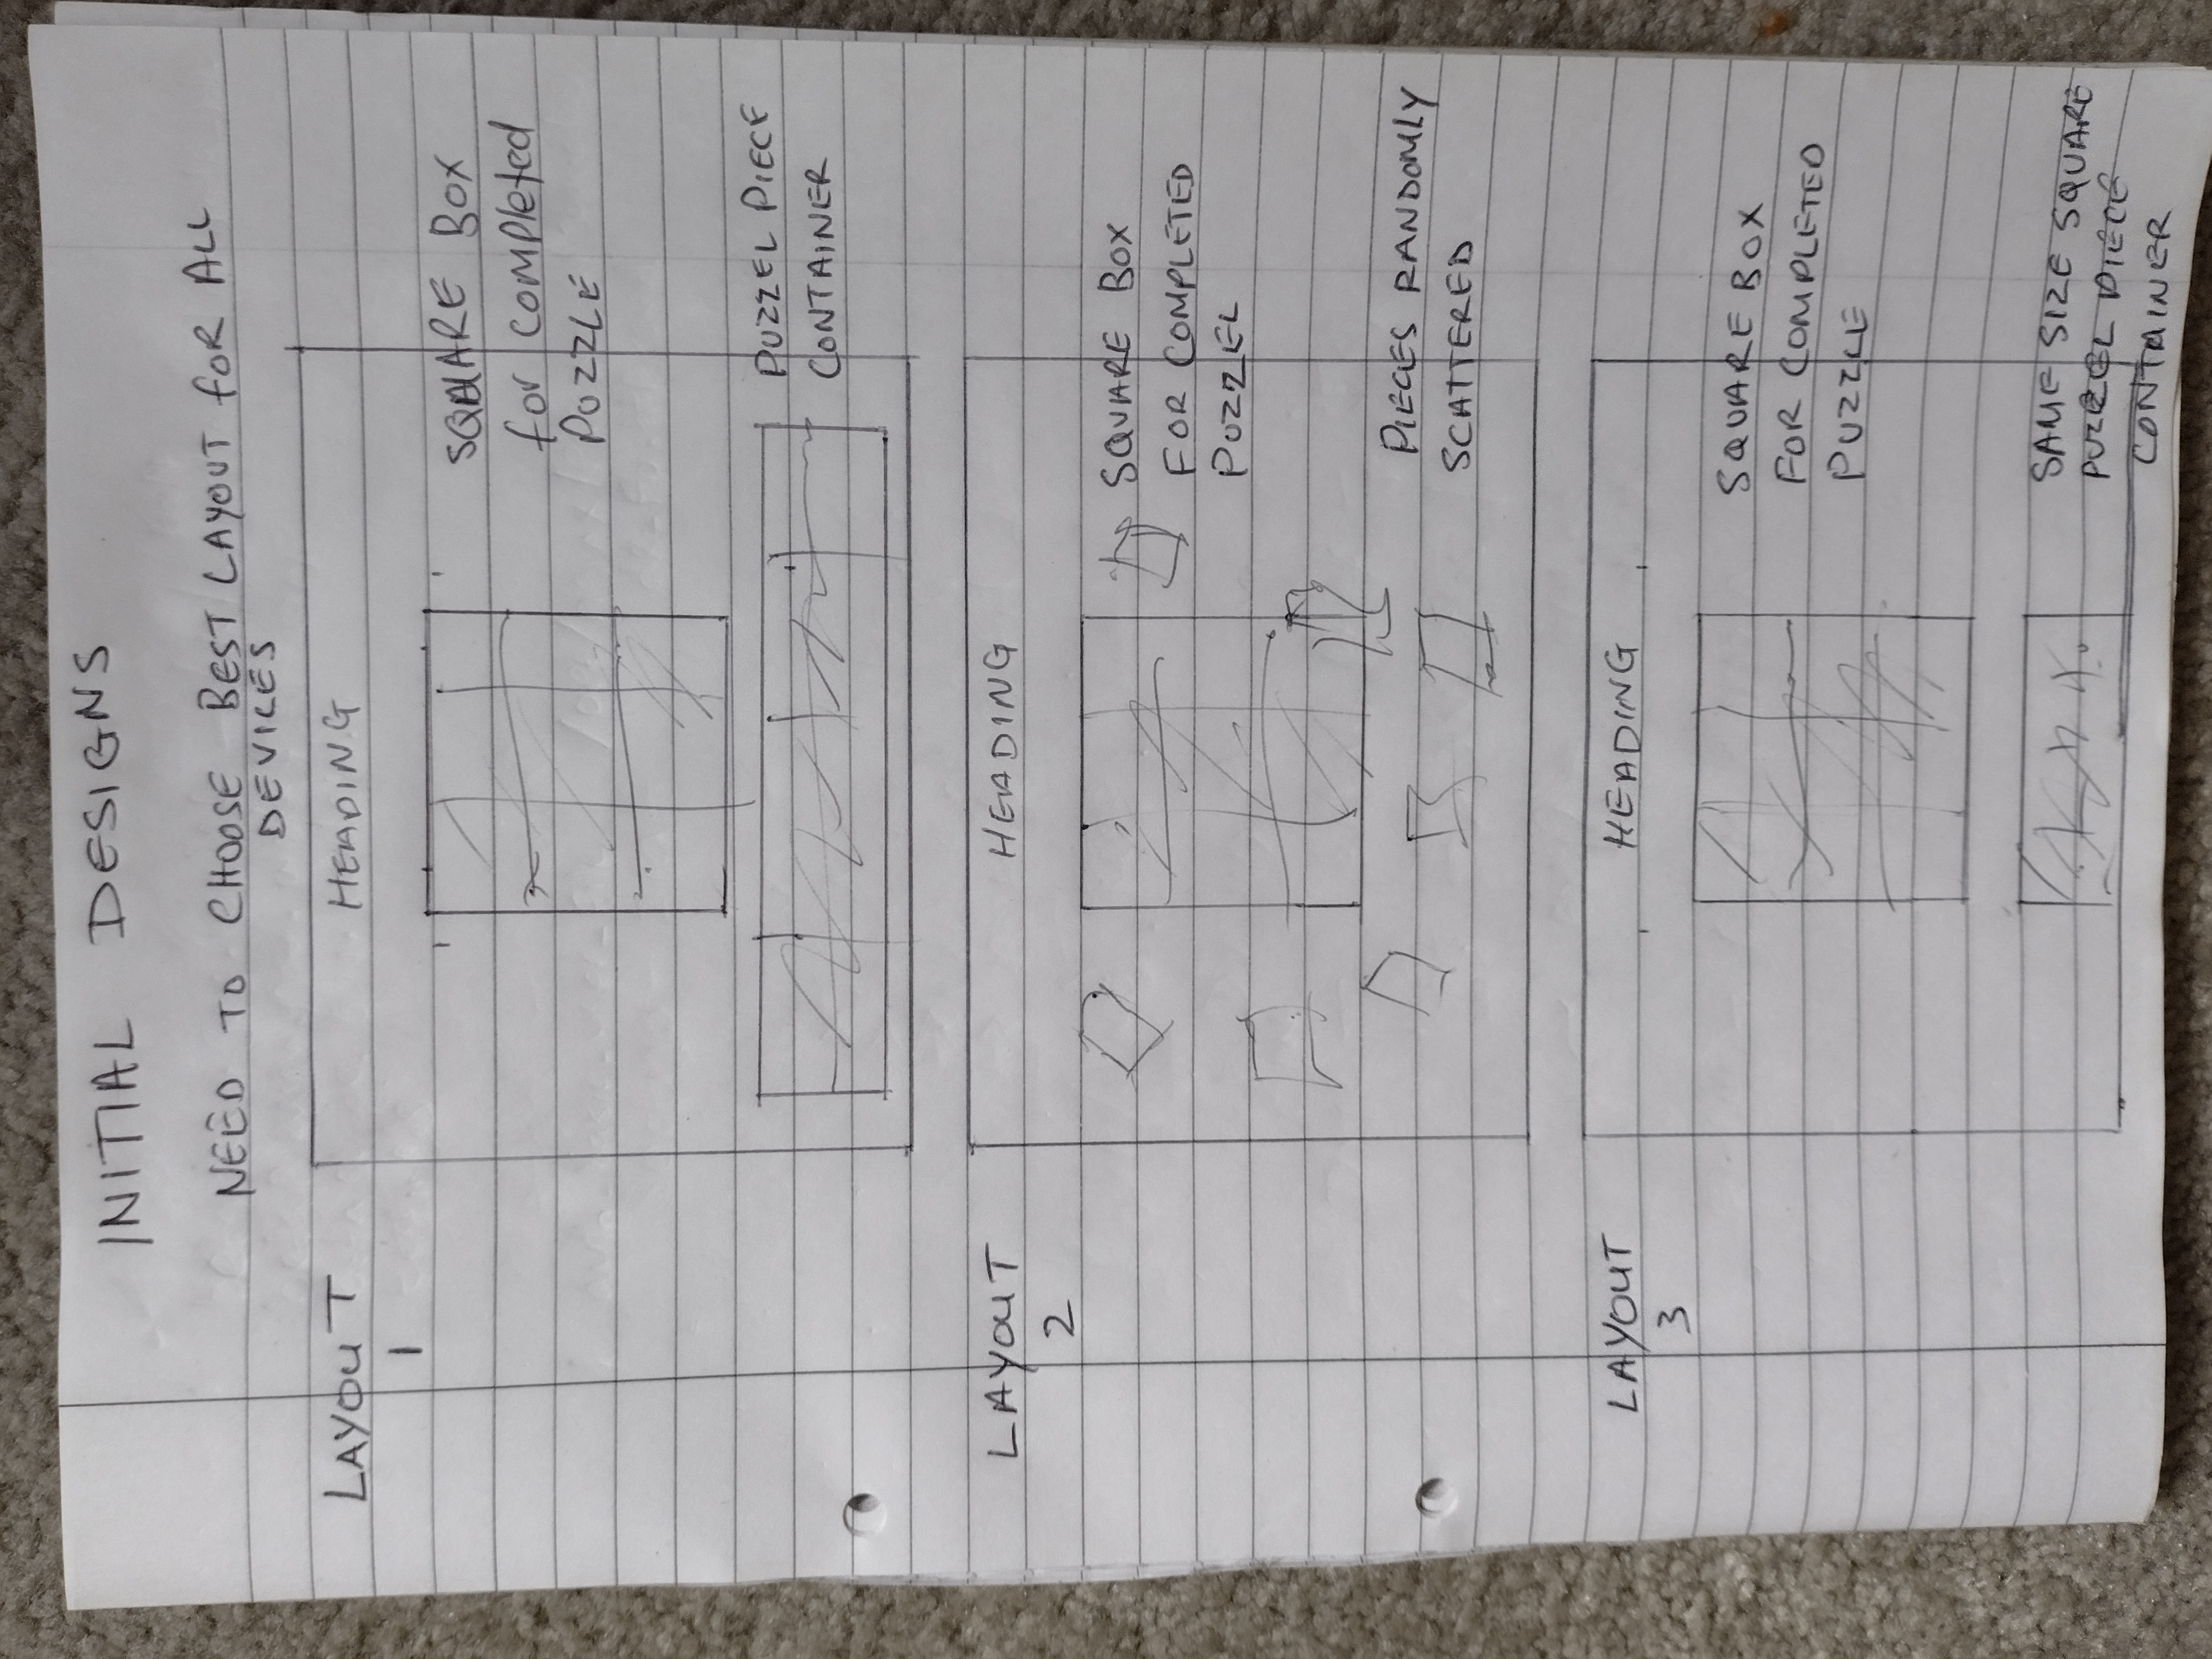 INITIAL DESIGNS
NEED TO CHOOSE BEST LAYOUT FOR ALL
DEVICES
LAYOUT
1
HEADING
SQUARE BOX
for completed
PUZZLE
PUZZEL PIECE
CONTAINER
LAYOUT
2
HEADING
SQUARE BOX
FOR COMPLETED
PUZZEL
PIECES RANDOMLY
SCATTERED
LAYOUT
3
HEADING
SQUARE BOX
FOR COMPLETED
PUZZLE
SAME SIZE SQUARE
PUZZEL PIECE
CONTAINER